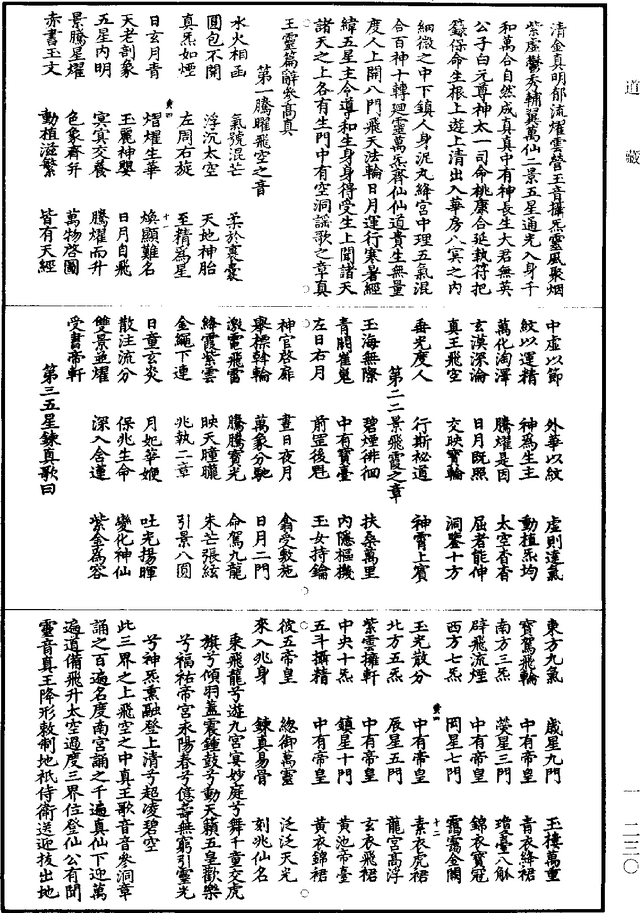 道藏
清金真明郁流燿雲營玉音攝炁靈風聚烟
紫虛鬱秀輔翼萬仙二景五星通光入身千
和萬合自然成真真中有神長生大君無英
公子白元尊神太一司命桃康合延執符把
籙保命生根上遊上清出入華房八冥之內
細微之中下鎮人身泥丸絳宮中理五氣混
合百神十轉迴靈萬炁齊仙仙道貴生無量
度人上開八門飛天法輪日月運行寒暑經
緯五星主令導和生身身得受生上聞諸天
諸天之上各有生門中有空洞謠歌之章真
王靈篇辭參高真
第一騰曜飛空之音
水火相函 氣號混芒 柔於裹囊
圓包不開 浮沉太空 天地神胎
真炁如煙 左周右旋 至精為星
日玄月青 熠燿生華 煥顯難名
十一
天老剖象 玉麗神嬰 日月自飛
五星內明 冥冥交養 騰燿而升
景騰星燿 色象齊并 萬物啓圖
赤書玉文 動植滋繁 皆有天經
中虛以節 外華以紋 虛則達氣
紋以運精 神為生主 動植炁均
萬化淘澤 騰燿是因 太空杳杳
玄漠深淪 日月既照 屈者能伸
真王飛空 交映寶輪 洞鑒十方
垂光度人 行斯祕道 神霄上賓
第二二景飛霞之章
玉海無際 碧煙徘徊 扶桑萬里
青關崔嵬 中有寶臺 內隱樞機
左日右月 前罡後魁 玉女持鑰
神官啓扉 晝日夜月 翕受敷施
舉標斡輪 萬象分馳 日月二門
激電飛雷 騰騰寶光 命駕九龍
絳霞紫雲 映天曈曨 朱芒張絃
金繩下連 兆執二章 引景八圓
日童玄炎 月妃華嬡 吐光揚暉
散注流分 保兆生命 變化神仙
雙景並燿 深入含蓮 紫金為容
受書帝軒
第三五星鍊真歌曰
東方九氣 歲星九門 玉樓萬重
寶駕飛輪 中有帝皇 青衣絳裙
南方三炁 熒星三門 瓊臺八觚
辟飛流煙 中有帝皇 錦衣寶冠
西方七炁 岡星七門 靄靄金闕
十二
玉光散分 中有帝皇 素衣虎裙
北方五炁 辰星五門 龍宮高浮
紫雲擁軒 中有帝皇 玄衣飛裙
中央十炁 鎮星十門 黃池帝臺
五斗攝精 中有帝皇 黃衣錦裙
彼五帝皇 總御萬靈 泛泛天光
來入兆身 鍊真易骨 刻兆仙名
乘飛龍兮遊九宮冥妙庭兮舞千童交虎
旗兮傾羽蓋震鍾鼓兮動天籟五皇歡樂
兮福祐帝宮永陽春兮億壽無窮引靈光
兮神炁熏融登上清兮超凌碧空
此三界之上飛空之中真王歌音音參洞章
誦之百遍名度南宮誦之千遍真仙下迎萬
遍道備飛升太空過度三界位登仙公有聞
靈音真王降形敕制地祇侍衛送迎拔出地
一一二三〇